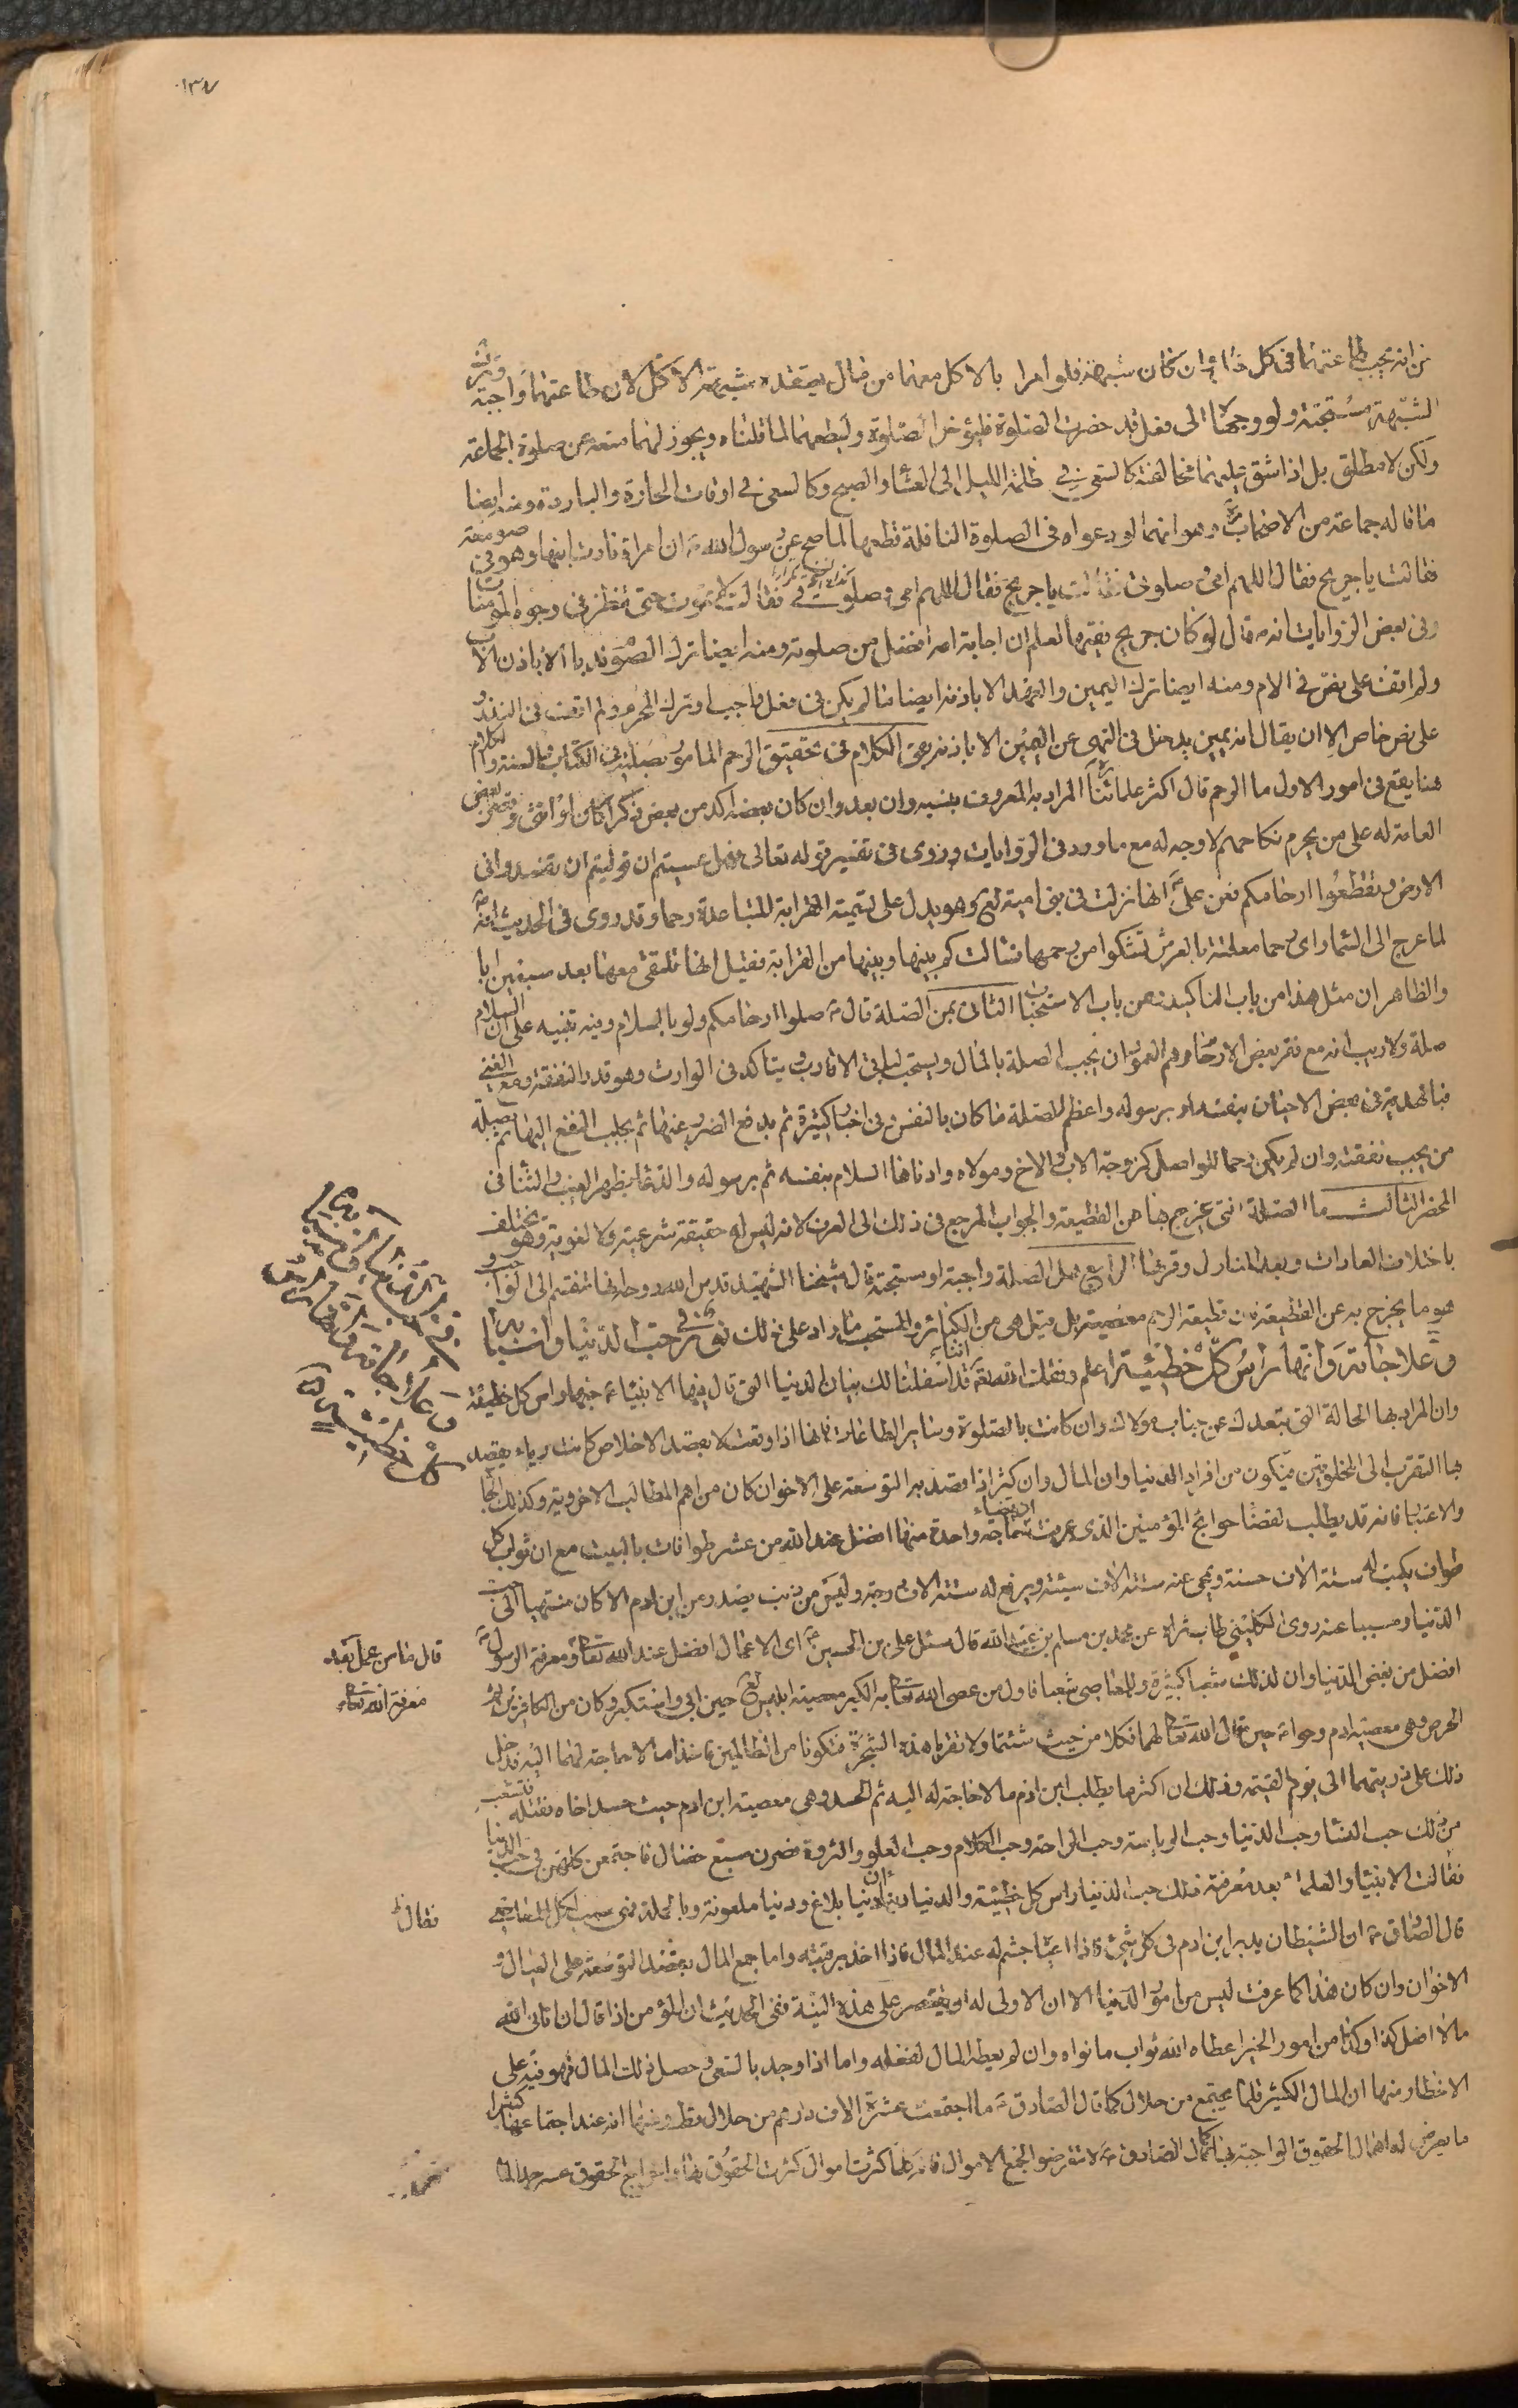 ١٣٧
من انه يجب طاعتهما فى كل شئ وان كان شبهة فلو امرا بالاكل معهما من مال يعتقد شبهته الاكل لان طاعتهما واجبة وترك
الشبهة مستحبة ولو دعيا الى فعل قد حضرت الصلوة فليؤخر الصلوة وليطعهما لما قلناه ويجوز لهما منعه عن صلوة الجماعة
ولكن لا مطلق بل اذا شق عليهما مخالفته كالسعى فى ظلمة الليل الى العشا والصبح وكالسعى فى اوقات الحارة والباردة ومنه ايضا
ما قاله جماعة من الاصحاب وهو انهما لو دعواه فى الصلوة النافلة قطعها لما صح عن رسول الله ص ان امراة نادت ابنها وهو فى صومعته
فقالت يا جريح فقال اللهم امى وصلوتى فقالت يا جريح فقال اللهم امى وصلوتى فقالت لا يموت حتى ينظر فى وجوه المومسات
وفى بعض الروايات انه ص قال لو كان جريح فقيها لعلم ان اجابة امه افضل من صلوته ومنه ايضا ترك الصوم ندبا الا باذن الاب
ولم اقف على نص فى الام ومنه ايضا ترك اليمين والعهد الا باذنه ايضا ما لم يكن فى فعل واجب او ترك المحرم ولم اقف فى النذر
على نص خاص الا ان يقال انه يمين يدخل فى النهى عن اليمين الا باذنه بقى الكلام فى تحقيق الرحم المامور بصلته فى الكتاب والسنة والكلام
هنا يقع فى امور الاول ما الرحم قال اكثر علمائنا المراد به المعروف بنسبه وان بعد وان كان بعضه اكد من بعض ذكرا كان او انثى وقصره بعض
العامة له على من يحرم نكاحهم لا وجه له مع ما ورد فى الروايات وروى فى تفسير قوله تعالى فهل عسيتم ان توليتم ان تفسدوا فى
الارض وتقطعوا ارحامكم فعن على انها نزلت فى بنى امية لع وهو يدل على تسمية القرابة المتباعدة رحما وقد روى فى الحديث انه
لما عرج الى السما راى رحما معلقة بالعرش تشكو من رحمها فسالت كم بينها وبينها من القرابة فقيل انها تلتقى معها بعد سبعين ابا
والظاهر ان مثل هذا من باب التاكيد من باب الاستحباب الثانى بمن الصلة قال ص صلوا ارحامكم ولو بالسلام وفيه تنبيه على ان السلام
صلة ولا ريب انه مع فقر بعض الارحام وهم العمودان يجب الصلة بالمال ويستحب لباقى الاقارب ويتاكد فى الوارث وهو قدر النفقة ومع الغنى
فبالهدية فى بعض الاحيان بنفسه او برسوله واعظم الصلة ما كان بالنفس وفى اخبار كثيرة ثم بدفع الضرر عنها ثم بجلب النفع اليها ثم بصلة
من يجب نفقته وان لم يكن رحما للواصل كزوجة الاب والاخ ومولاه وادناها السلام بنفسه ثم برسوله والدعا بظهر الغيب والثنا فى
المحضر الثالث ما الصلة التى يخرج بها عن القطيعة والجواب المرجع فى ذلك الى العرف لانه ليس له حقيقة شرعية ولا لغوية وهو يختلف
باختلاف العادات وبعد المنازل وقربها الرابع هل الصلة واجبة او مستحبة قال شيخنا الشهيد قدس الله روحه انها تنقسم الى الواجب و
هو ما يخرج به عن القطيعة فان قطيعة الرحم معصية بل قيل هى من الكبائر والمستحب ما زاد على ذلك نور فى حب الدنيا واسبابها
وعلاجاته وانها راس كل خطيئة اعلم وفقك الله تعالى انا قد اسلفنا لك بيان الدنيا التى قال فيها الانبياء حبها راس كل خطيئة
وان المراد بها الحالة التى تبعدك عن جناب مولاك وان كانت بالصلوة وساير الطاعات فانها اذا وقعت لا بقصد الاخلاص كانت رياء بقصد
بها التقرب الى المخلوقين فيكون من افراد الدنيا وان المال وان كثر اذا قصد به التوسعة على الاخوان كان من اهم المطالب الاخروية وكذلك الجاه
والاعتبار فانه قد يطلب لقضا حوائج المؤمنين الذى عرفت ان قضاء حاجة واحدة منها افضل عند الله من عشر طوافات بالبيت مع ان ثواب كل
طواف يكتب له ستة الاف حسنة ويمحى عنه ستة الاف سيئة ويرفع له ستة الاف درجة وليس من ذنب يصدر من ابن ادم الا كان منتهيا الى حب
الدنيا ومسببا عنه روى الكلينى طاب ثراه عن محمد بن مسلم بن عبدالله قال سئل على بن الحسين ع اى الاعمال افضل عند الله تعالى ومعرفة الرسول
قال ما من عمل بعد
معرفة الله تعالى
افضل من بغض الدنيا وان لذلك شعبا كثيرة وللمعاصى شعبا فاول من عصى الله تعالى به الكبر معصية ابليس لع حين ابى واستكبر وكان من الكافرين ثم
الحرص وهى معصية ادم وحوا ع حين قال الله تعالى لهما فكلا من حيث شئتما ولا تقربا هذه الشجرة فتكونا من الظالمين فاخذا ما لا حاجة لهما اليه فدخل
ذلك على ذريتهما الى يوم القيمة وذلك ان اكثر ما يطلب ابن ادم ما لا حاجة له اليه ثم الحسد وهى معصية ابن ادم حيث حسد اخاه فقتله فتشعب
من ذلك حب النسا وحب الدنيا وحب الرياسة وحب الراحة وحب الكلام وحب العلو والثروة فصرن سبع خصال فاجتمعن كلهن فى حب الدنيا
فقالت الانبيا والعلماء بعد معرفة ذلك حب الدنيا راس كل خطيئة والدنيا دنياان دنيا بلاغ ودنيا ملعونة وبالجملة فهى سبب لكل المعاصى
فقال
قال الصادق ع ان الشيطان يدبر ابن ادم فى كل شئ فاذا اعيا جثم له عند المال فاذا اخذ برقبته واما جمع المال بقصد التوسعة على العيال و
الاخوان وان كان هذا كما عرفت ليس من امور الدنيا الا ان الاولى له ان يقتصر على هذه النية ففى الحديث ان المؤمن اذا قال ان اتانى الله
مالا افعل كذا وكذا من امور الخير اعطاه الله ثواب ما نواه وان لم يعطه المال لفعله واما اذا وجد بالسعى وحصل ذلك المال فهو فيه على
الاخطار منها ان المال الكثير قلما يجتمع من حلال كما قال الصادق ع ما اجتمعت عشرة الاف درهم من حلال قط ومنها انه عند اجتماعه كثيرا
ما يعرض له اهمال الحقوق الواجبة فيه كما قال الصادق ع لا تتعرضوا لجمع الاموال فانه كلما كثرت اموال كثرت الحقوق بها واخراج الحقوق عسر